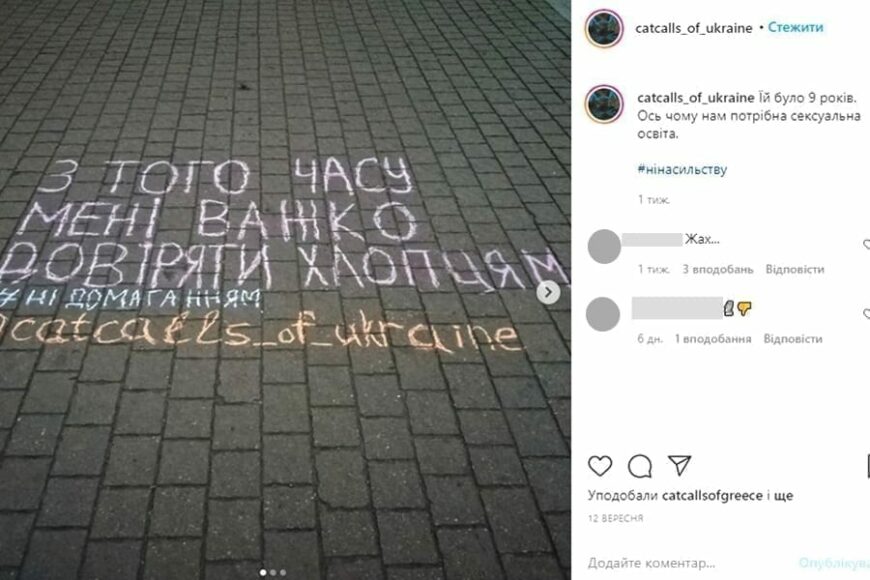 З ТОГО ЧАСУ
МЕНІ ВАЖКО
ДОВІРЯТИ ХЛОПЦЯМ
#НІ ДОМАГАННЯМ
@catcalls_of_ukraine
catcalls_of_ukraine • Стежити
catcalls_of_ukraine Їй було 9 років.
Ось чому нам потрібна сексуальна
освіта.
#нінасильству
1 тиж.
Жах...
1 тиж. 3 вподобань Відповісти
6 дн. 1 вподобання Відповісти
Уподобали catcallsofgreece і ще
12 ВЕРЕСНЯ
Додайте коментар...